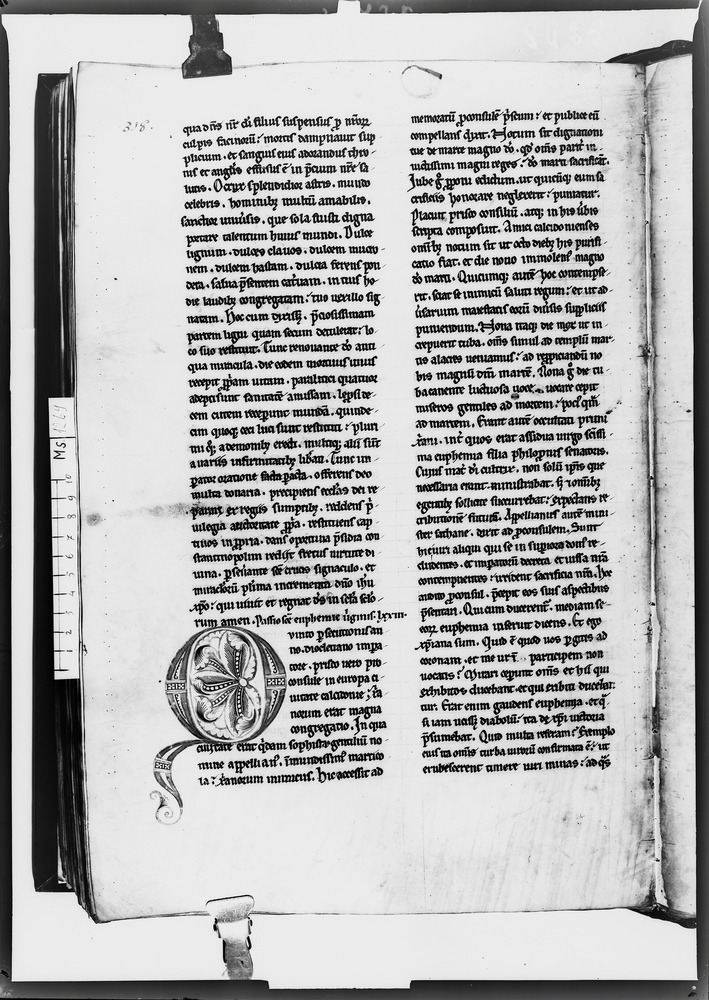 318.
qua dñs nr̃ di filius suspensus p nr̃oꝝ
culpis facinoꝝ: mortis dampnauit sup
plicium. et sanguis eius adorandus chro
nis et angl̃is effusus ẽ in p̃cium nr̃e sa
lutis. O crux splendidior astris. mundo
celebris. hominibꝫ multũ amabilis.
sanctior uniũsis. que sola fuisti digna
portare talentum huius mundi. Dulce
lignum. dulces clauos. dulcem mucro
nem. dulcem hastam. dulcia ferens pon
dera. salua p̃sentem cat̃uam. in tuis ho
die laudibꝫ congregatam: tuo uexillo sig
natam. Hoc cum dixiss3. p̃ciosissimam
partem ligni quam secum detulerat: lo
co suo restituit. Tunc renouante dõ anti
qua miracula. die eodem mortuus unus
recepit p̃pam uitam. paralitici quatuor
adepti sunt sanitatẽ amissam. lep̃si de
cem cutem receperunt mundã. quinde
cim quoqꝫ ceci luci sunt restituti: pluri
mi qꝫ a demoniis erecti. multiqꝫ alii sũt
a uariis infirmitatibꝫ libati. Tunc im
p̃ator oratione facta. offerens deo
multa donaria. precipiens eccl̃as dei re
parari ex regiis sumptibꝫ. reddens p̃
uilegia auctoritate p̃pa. restituens cap
tiuos in p̃pria. dans oportuna p̃sidia con
stantinopolim rediit fretus uirtute di
uina. p̃seuante sc̃e crucis signaculo. et
miraclõꝝ plima incrementa dño ihũ
xp̃o: qui uiuit et regnat d̃s in sc̃la sc̃lo
rum amen. Passio sc̃e euphemie ũginis. lxxiii.
Q uinto p̃secutionis an
no. diocletiano impa
tore. prisco uero pro
consule in europa ci
uitate calcidonie; x̃a
norum erat magna
congregatio. In qua
ciuitate erat q̃dam sophista gentiliũ no
mine appelli anˀ. immundissimˀ martico
la: x̃anorum inimicus. Hic accessit ad
memoratũ p̃consulẽ p̃scum: et publice eũ
compellans dixit. Notum sit dignationi
tue de marte magno dõ. q̃d om̃s parit in
uictissimi magni reges: dõ marti sacrificãt.
Iube g̃ p̃poni edictum. ut quicũqꝫ eum sa
crificiis honorare neglexerit: puniatur.
Placuit prisco consiliũ. atqꝫ in his ũbis
scripta composuit. Amici calcidonienses
om̃ibꝫ notum sit ut octo diebꝫ his purifi
catio fiat. et die nono immolens magno
dõ marti. Quicumqꝫ autẽ hoc contempse
rit. sciat se inimicũ saluti regum: et ut ad
ũsarium maiestatis eorũ diũsis suppliciis
puniendum. Nona itaqꝫ die mox ut in
crepuerit tuba. om̃s simul ad templũ mar
tis alacres ueniamus: ad repp̃iciandũ no
bis magnũ dm̃ martẽ. Nona g̃ die tu
ba canente luctuosa uoce. uocare cepit
miseros gentiles ad mortem: pocˀ q̃m
ad martem. Erant autẽ occultati p̃imi
x̃ani. int̃ quos erat assidua uirgo sc̃issi
ma euphemia filia philophus senatoris.
Cuius mat̃ dĩ cultrix. non solũ ip̃is que
necessaria erant ministrabat. s; ⁊ om̃ibꝫ
egentibꝫ sollicite succurrebat: expectans re
tributionẽ futurã. Appellianus autẽ mini
ster sathane. dixit ad p̃consulem. Sunt
hic uiri aliqui qui se in supiora dom̃ re
cludentes. et impatorũ decreta et iussa nr̃a
contempnentes: irrident sacrificia nr̃a. Hoc
audito p̃consul. p̃cepit eos suis aspectibus
p̃sentari. Qui cum ducerent̃. mediam se
eoꝝ euphemia inseruit dicens. Et ego
xp̃iana sum. Quid ẽ quod uos p̃gitis ad
coronam. et me ut ĩ participem non
uocatis: Quari ceperunt om̃s et hii qui
exhibitos ducebant. et qui exibiti duceban
tur. Erat enim gaudens euphemia. et q̃
si iam uiciss3 diabolũ. ita de xp̃i uictoria
p̃sumebat. Quid multa referam: Exemplo
eius ita om̃is turba uirorũ confirmata ẽ: ut
erubescerent timere uiri minas: ad q̃s
MS 1264
1 2 4 5 6 7 8 9 10